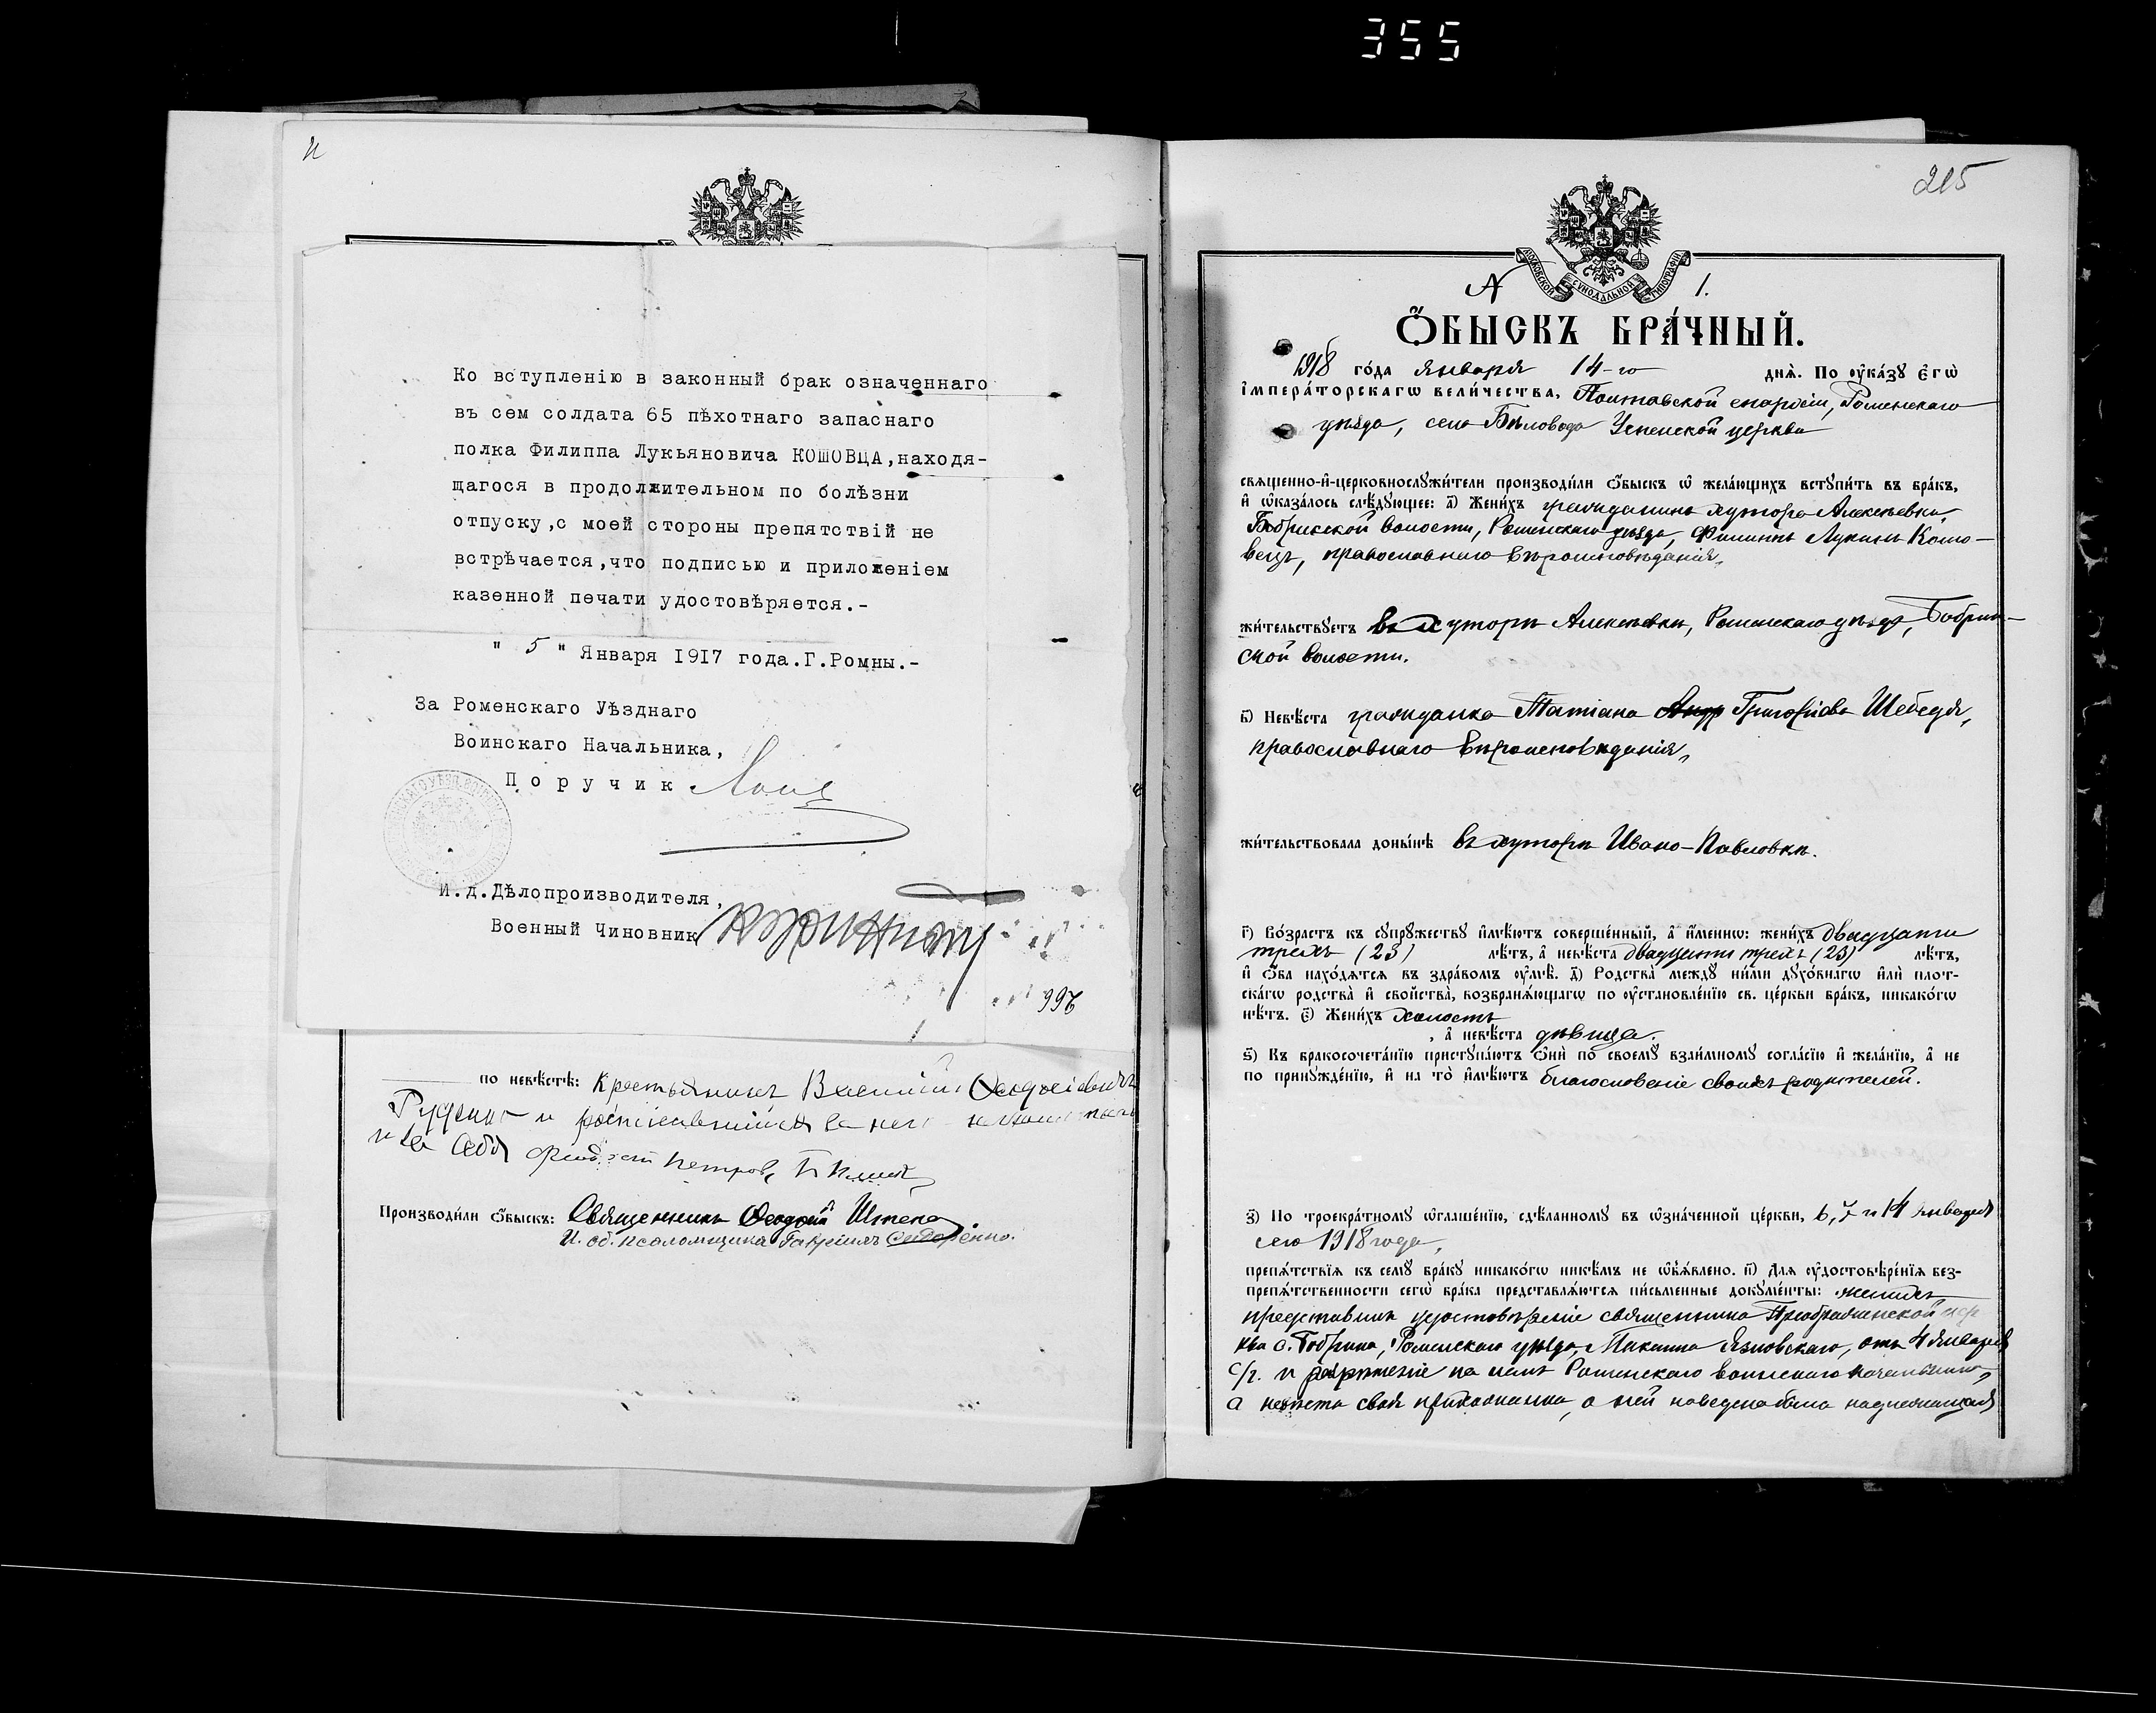 355
Ко вступленію в законный брак означеннаго
въ сем солдата 65 пѣхотнаго запаснаго
полка Филиппа Лукьяновича КОШОВЦА,находя-
щагося в продолжительном по болѣзни
отпуску,с моей стороны препятствій не
встрѣчается,что подписью и приложеніем
казенной печати удостовѣряется.-
" 5 " Января 1917 года.Г.Ромны.-
За Роменскаго Уѣзднаго
Воинскаго Начальника,
Поручик
И.д.Дѣлопроизводителя,
Военный Чиновник
996
по невѣстѣ: Крестьянинъ Василій Ѳеодосіевичъ
и за себя Петров
Производи́ли ѻ҆́быскъ: Священникъ Ѳеодосій Штепа
И. об. псаломщика Гавріилъ Сидоренко.
215
МОСКОВСКОЙ СѴНОДАЛЬНОЙ ТИПОГРАФІИ
А 1.
Ѻ҆́БЫСКЪ БРА́ЧНЫЙ.
1918 го́да января 14-го днѧ̀. По ᲂу҆ка́зꙋ є҆гѡ̀
і҆мпера́торскагѡ вели́чества, Полтавской епархіи, Роменскаго
уѣзда, села Бѣловода Успенской церкви
свѧще́нно-и҆-церковнослꙋжи́тели производи́ли ѻ҆́быскъ ѡ҆ жела́ющихъ встꙋпи́ть въ бра́къ,
и҆ ѡ҆каза́лось слѣ́дꙋющее: а҃) Жени́хъ гражданинъ хутора Алексѣевки,
Бобрикской волости, Роменскаго уѣзда, Филиппъ Лукинъ Кошо-
вецъ, православнаго вѣроисповѣданія,
жи́тельствꙋетъ въ хуторѣ Алексѣевки, Роменскаго уѣзда, Бобрик-
ской волости.
в҃) Невѣ́ста гражданка Татіана Андр Григоріева Шебедя,
православнаго вѣроисповѣданія,
жи́тельствовала доны́нѣ въ хуторѣ Ивано-Павловкѣ.
г҃) Во́зрастъ къ сꙋпрꙋ́жествꙋ и҆мѣ́ютъ соверше́нный, а҆ и҆́менно: жени́хъ двадцати
трехъ (23) лѣ́тъ, а҆ невѣ́ста двадцати трехъ (23) лѣ́тъ,
и҆ ѻ҆́ба нахо́дѧтсѧ въ здра́вомъ ᲂу҆мѣ̀. д҃) Родства̀ междꙋ ни́ми дꙋхо́внагѡ и҆лѝ плот-
ска́гѡ родства̀ и҆ сво́йства̀, возбранѧ́ющагѡ по ᲂу҆становле́нїю св. це́ркви бра́къ, никако́гѡ
нѣ́тъ. є҃) Жени́хъ холостъ
, а҆ невѣ́ста дѣвица.
ѕ҃) Къ бракосочета́нїю пристꙋпа́ютъ ѻ҆нѝ по своемꙋ̀ взаи́мномꙋ согла́сїю и҆ жела́нїю, а҆ не
по принꙋжде́нїю, и҆ на то̀ и҆мѣ́ютъ благословеніе своихъ родителей.
з҃) По троекра́тномꙋ ѡ҆глаше́нїю, сдѣ́ланномꙋ въ ѡ҆зна́ченной це́ркви, 6, 7 и 14 января
сего 1918 года,
препѧ́тствїѧ къ семꙋ̀ бра́кꙋ никако́гѡ никѣ́мъ не ѡ҆б̾ѧ́влено. и҃) Для ᲂу҆достовѣре́нїѧ без-
препѧ́тственности сегѡ̀ бра́ка представлѧ́ютсѧ пи́сьменные докꙋме́нты: женихъ
представилъ удостовѣреніе священника Преображенской цер
кви с. Бобрика, Роменскаго уѣзда, Язловскаго, отъ 4 января
с/г. и разрѣшеніе на имя Роменскаго воинскаго начальника,
а невѣста своя прихожанка, о ней наведена была надлежащая